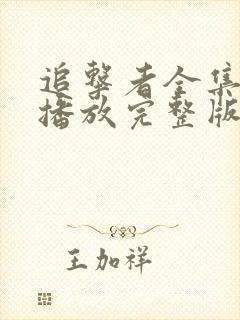 追击者全集
播放完整版
王加祥